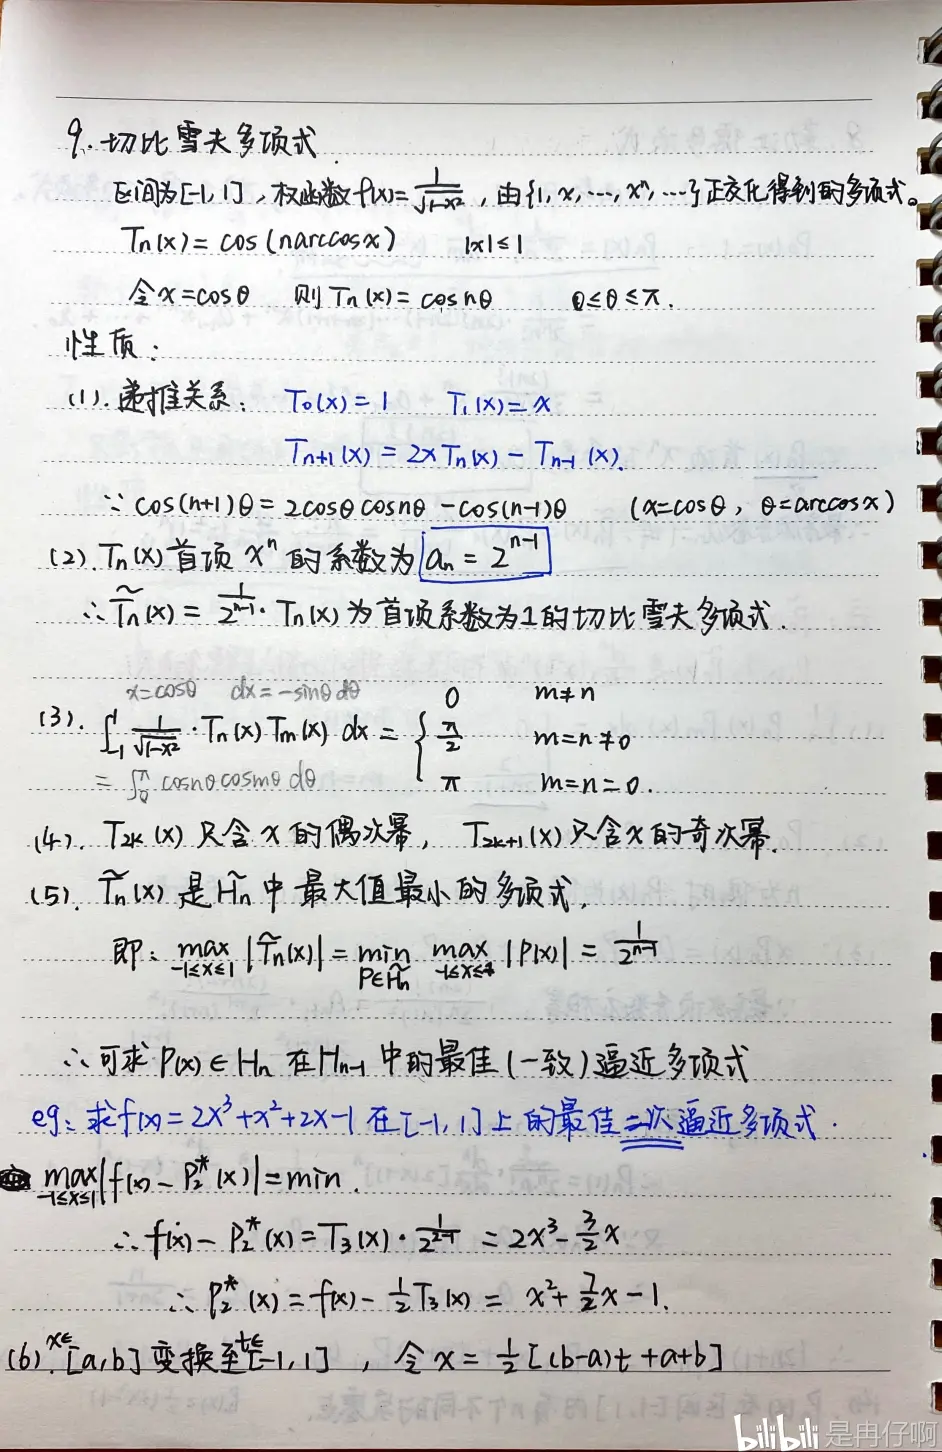 9. 切比雪夫多项式
区间为[-1,1],权函数f(x)=1/√(1-x²),由{1,x,…,xⁿ,…}正交化得到的多项式。
Tn(x)=cos(narccosx) |x|≤1
令x=cosθ 则Tn(x)=cosnθ 0≤θ≤π.
性质:
(1). 递推关系: T₀(x)=1 T₁(x)=x
Tn+1(x)=2xTn(x)-Tn-1(x).
∵cos(n+1)θ=2cosθcosnθ-cos(n-1)θ (x=cosθ, θ=arccosx)
(2). Tn(x)首项xⁿ的系数为 an=2ⁿ⁻¹
∴T̃n(x)=1/2ⁿ⁻¹·Tn(x)为首项系数为1的切比雪夫多项式.
x=cosθ dx=-sinθdθ
(3). ∫₋₁¹ 1/√(1-x²)·Tn(x)Tm(x)dx={ 0 m≠n
π/2 m=n≠0
π m=n=0.
=∫₀^π cosnθcosmθdθ
(4). T2k(x)只含x的偶次幂, T2k+1(x)只含x的奇次幂.
(5). T̃n(x)是H̃n中最大值最小的多项式.
即: max -1≤x≤1 |T̃n(x)|=min P∈H̃n max -1≤x≤1 |P(x)|=1/2ⁿ⁻¹
∴可求P(x)∈Hn在Hn-1中的最佳(一致)逼近多项式
eg: 求f(x)=2x³+x²+2x-1在[-1,1]上的最佳二次逼近多项式.
max -1≤x≤1 |f(x)-P₂*(x)|=min.
∴f(x)-P₂*(x)=T₃(x)·1/2²⁻¹=2x³-3/2x
∴P₂*(x)=f(x)-1/2T₃(x)=x²+7/2x-1.
(6). x∈[a,b]变换至t∈[-1,1],令x=1/2[(b-a)t+a+b]
bilibili 是冉仔啊